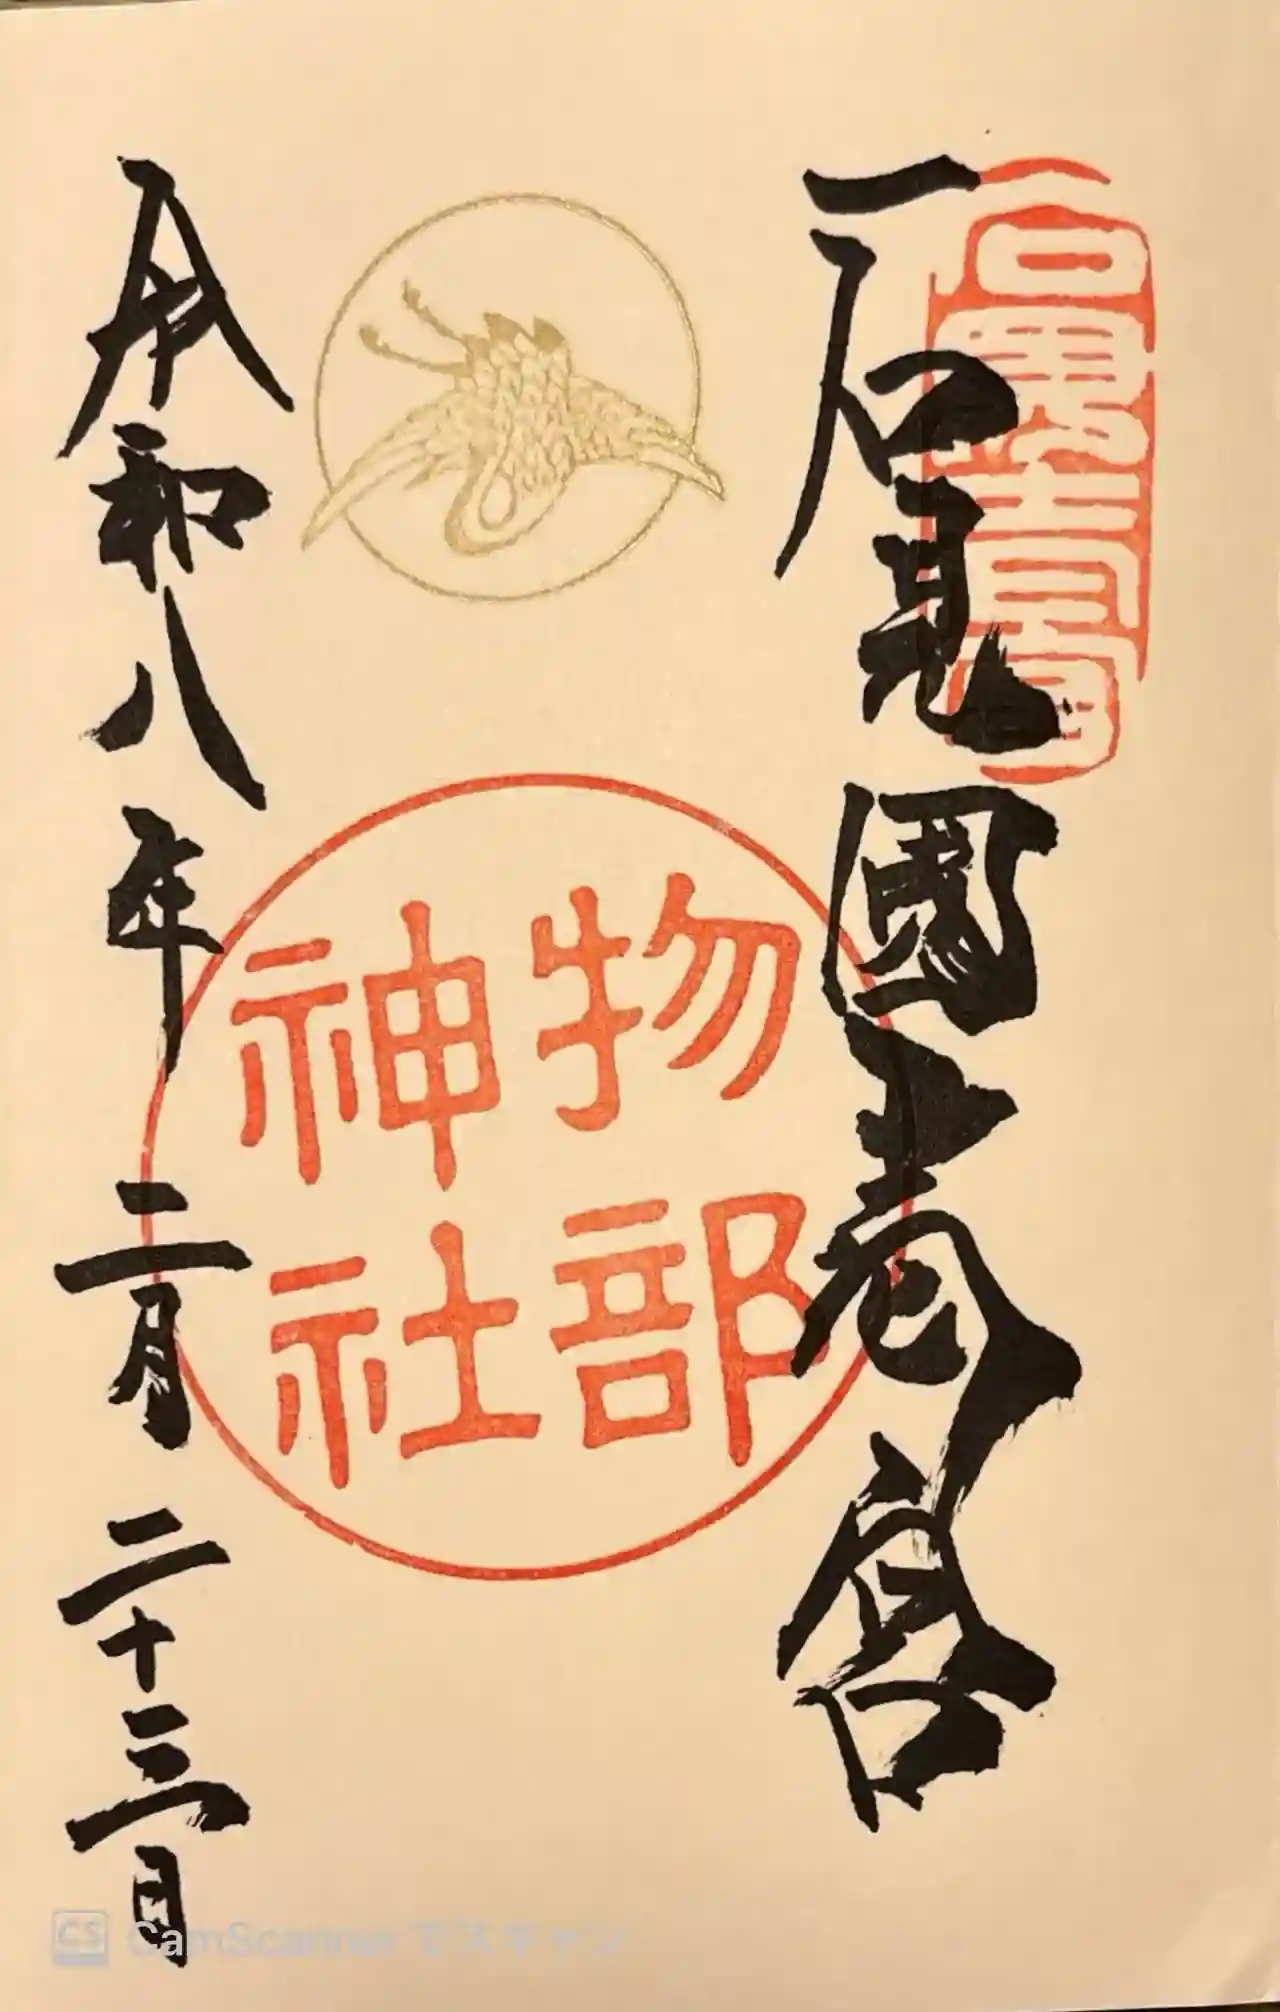 石見國壱宮
物部
神社
令和八年二月二十三日
CS CamScanner でスキャン